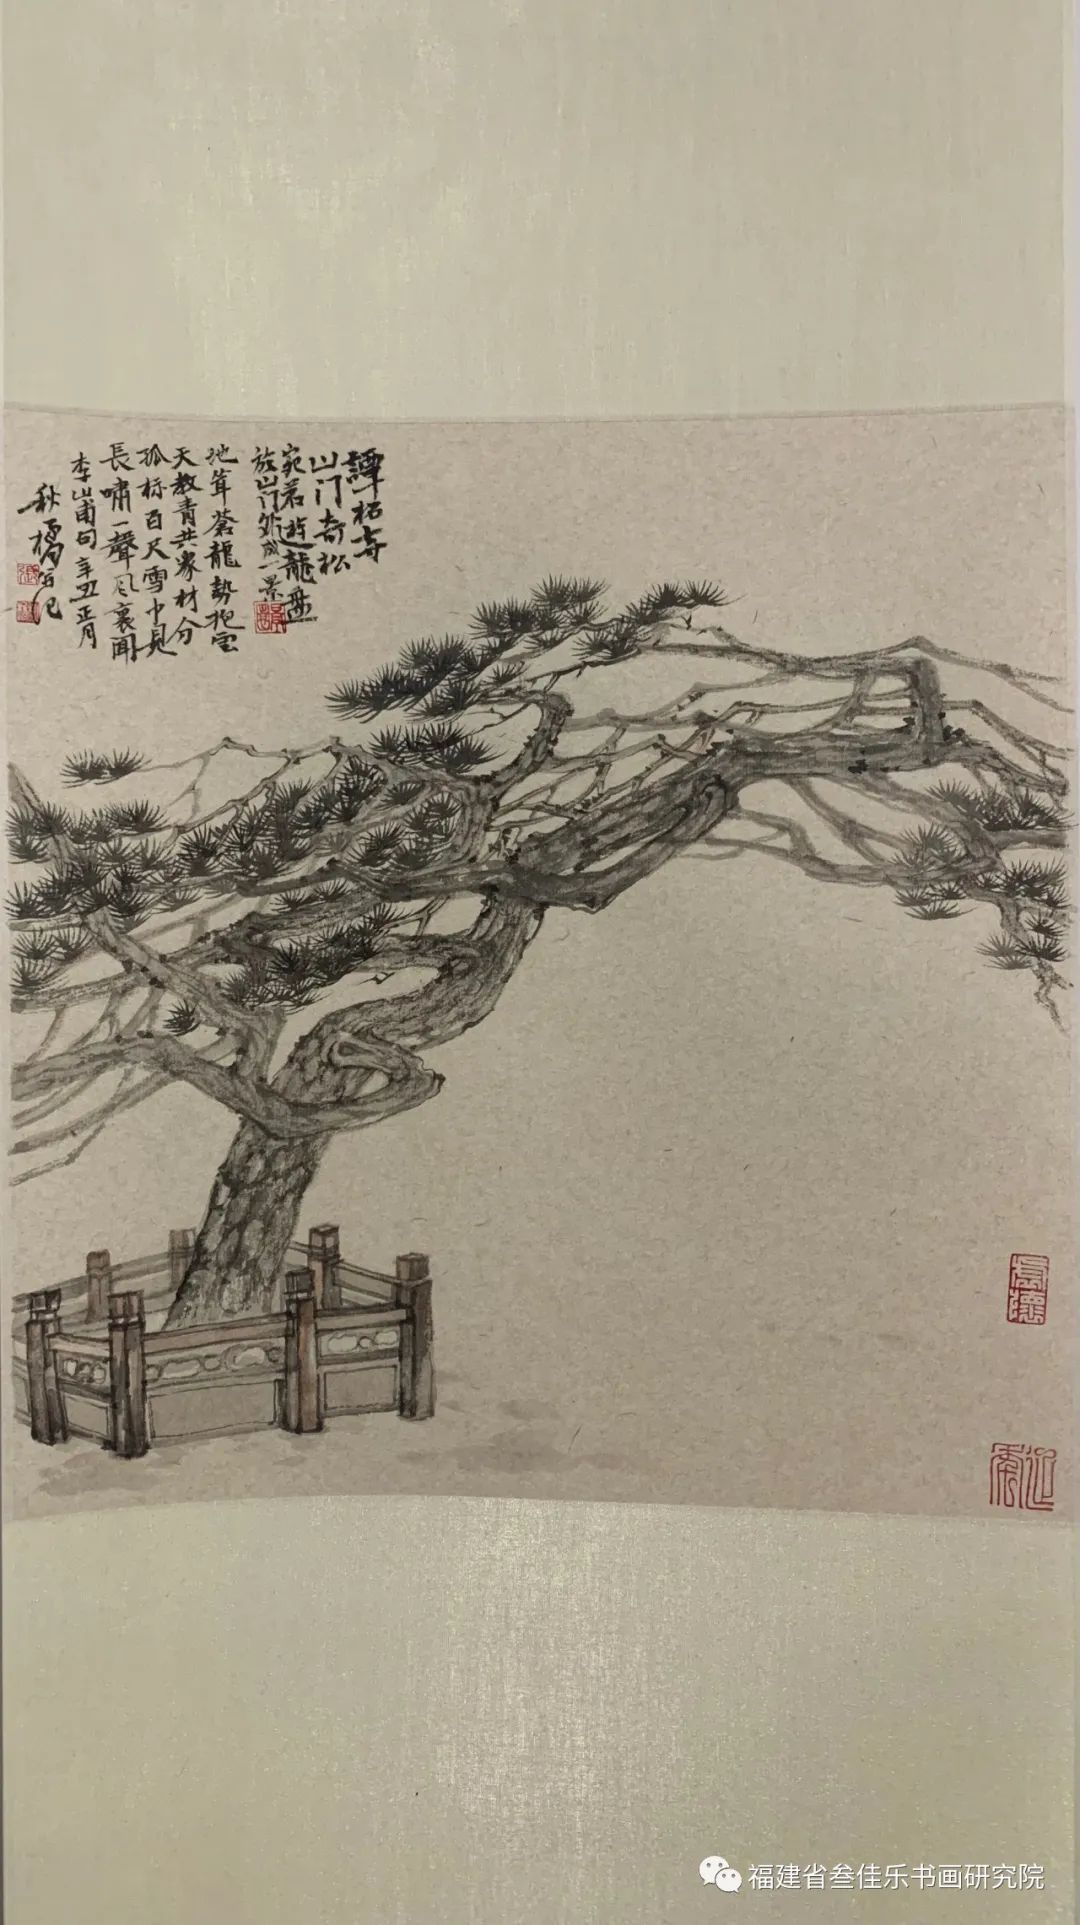 譚柘寺
山门奇松
宛若遊龍盘
於山门外成一景
地耸蒼龍勢抱雲
天教青共眾材分
孤标百尺雪中見
長嘯一聲风裏聞
李山甫句辛丑正月
秋
福建省叁佳乐书画研究院